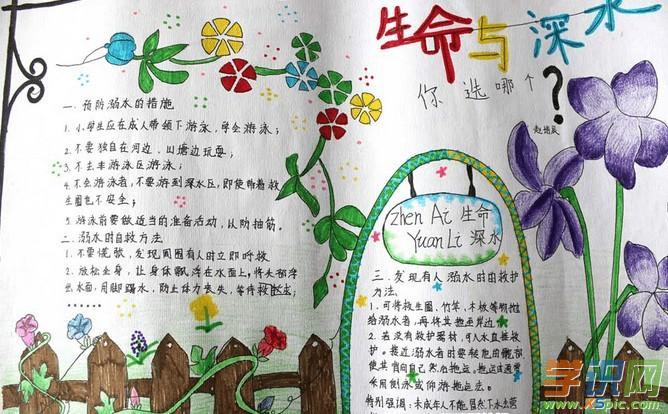 生命与深水
你选哪个?
一.预防溺水的措施
1.小学生应在成人带领下游泳,学会游泳;
2.不要独自在河边、山塘边玩耍;
3.不去非游泳区游泳;
4.不会游泳者,不要游到深水区,即使带着救
生圈也不安全;
5.游泳前要做适当的准备活动,以防抽筋。
二.溺水时的自救方法
1.不要慌张,发现周围有人时立即呼救
2.放松全身,让身体飘浮在水面上,将头部浮
出水面,用脚踢水,防止体力丧失,等待救援;
zhen Ai 生命
Yuan Li 深水
三.发现有人溺水时的救护
方法.
1.可将救生圈、竹竿、木板等物抛
给溺水者,再将其拖至岸边
2.若没有救护器材,可入水直接救
护。接近溺水者时要转他的髋部
使其背向自己然后拖运。拖运时通常
采用侧泳或仰游拖运法。
特别强调:未成年人不能
学识网
www.XSpic.com